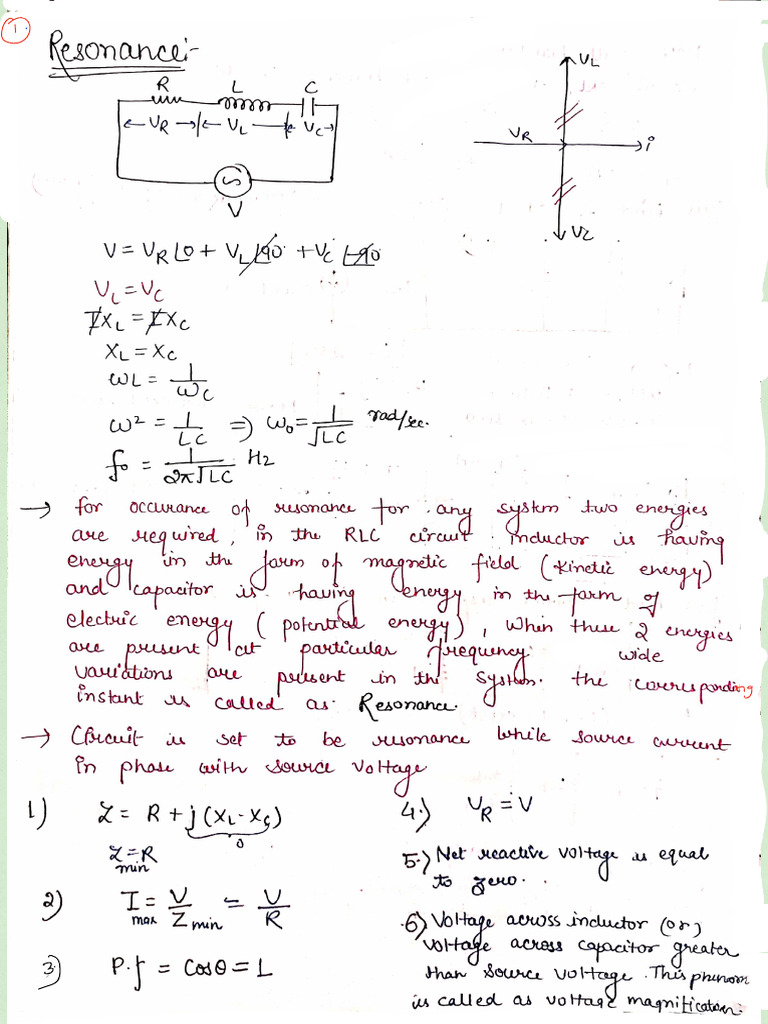 1
Resonance:-
R L C
VR VL VC
V
VL
VR
i
VC
V = VR∠0 + VL∠90 + VC∠-90
VL = VC
IXL = IXC
XL = XC
ωL = 1/ωC
ω² = 1/LC ⇒ ω₀ = 1/√LC rad/sec.
f₀ = 1/2π√LC Hz
→ for occurance of resonance for any system two energies
are required, in the RLC circuit inductor is having
energy in the form of magnetic field (kinetic energy)
and capacitor is having energy in the form of
electric energy (potential energy), When these 2 energies
are present at particular frequency wide
variations are present in the system. the corresponding
instant is called as Resonance.
→ Circuit is set to be resonance while source current
in phase with source voltage
1) Z = R + j(XL - XC)
0
Z = R
min
2) I = V/Z min = V/R
max
3) P.f = cosθ = L
4.) VR = V
5.) Net reactive voltage is equal
to zero.
6) Voltage across inductor (or)
voltage across capacitor greater
than source voltage. This phenom
is called as voltage magnification.